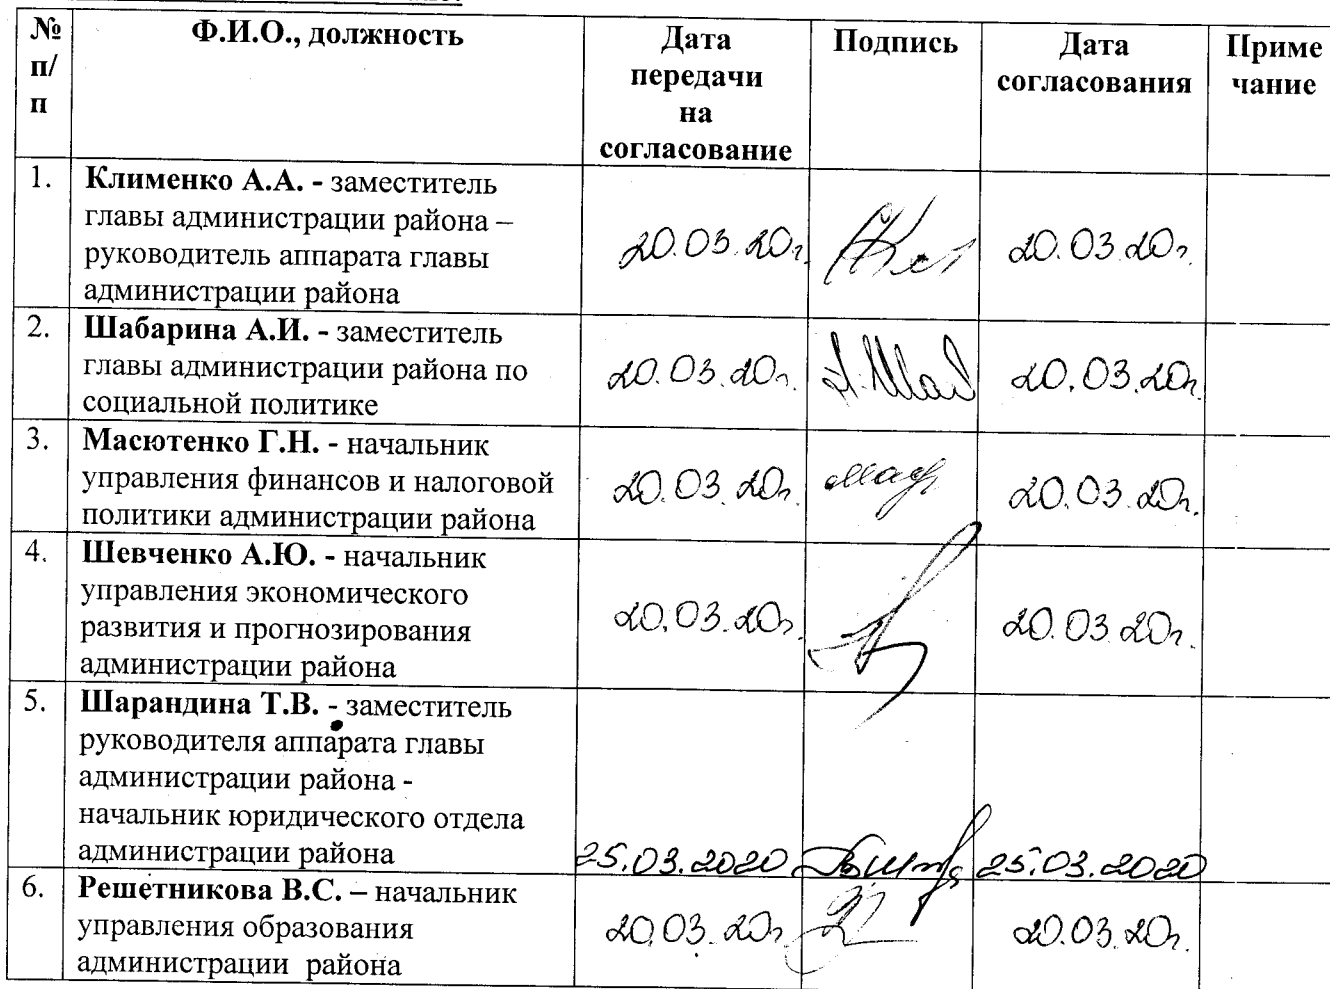 № п/п Ф.И.О., должность Дата передачи на согласование Подпись Дата согласования Примечание
1. Клименко А.А. - заместитель
главы администрации района –
руководитель аппарата главы
администрации района
20.03.20г. 20.03.20г.
2. Шабарина А.И. - заместитель
главы администрации района по
социальной политике
20.03.20г. А.Шаб 20.03.20г.
3. Масютенко Г.Н. - начальник
управления финансов и налоговой
политики администрации района
20.03.20г. 20.03.20г.
4. Шевченко А.Ю. - начальник
управления экономического
развития и прогнозирования
администрации района
20.03.20г. 20.03.20г.
5. Шарандина Т.В. - заместитель
руководителя аппарата главы
администрации района -
начальник юридического отдела
администрации района
25.03.2020 25.03.2020
6. Решетникова В.С. – начальник
управления образования
администрации района
20.03.20г. 20.03.20г.